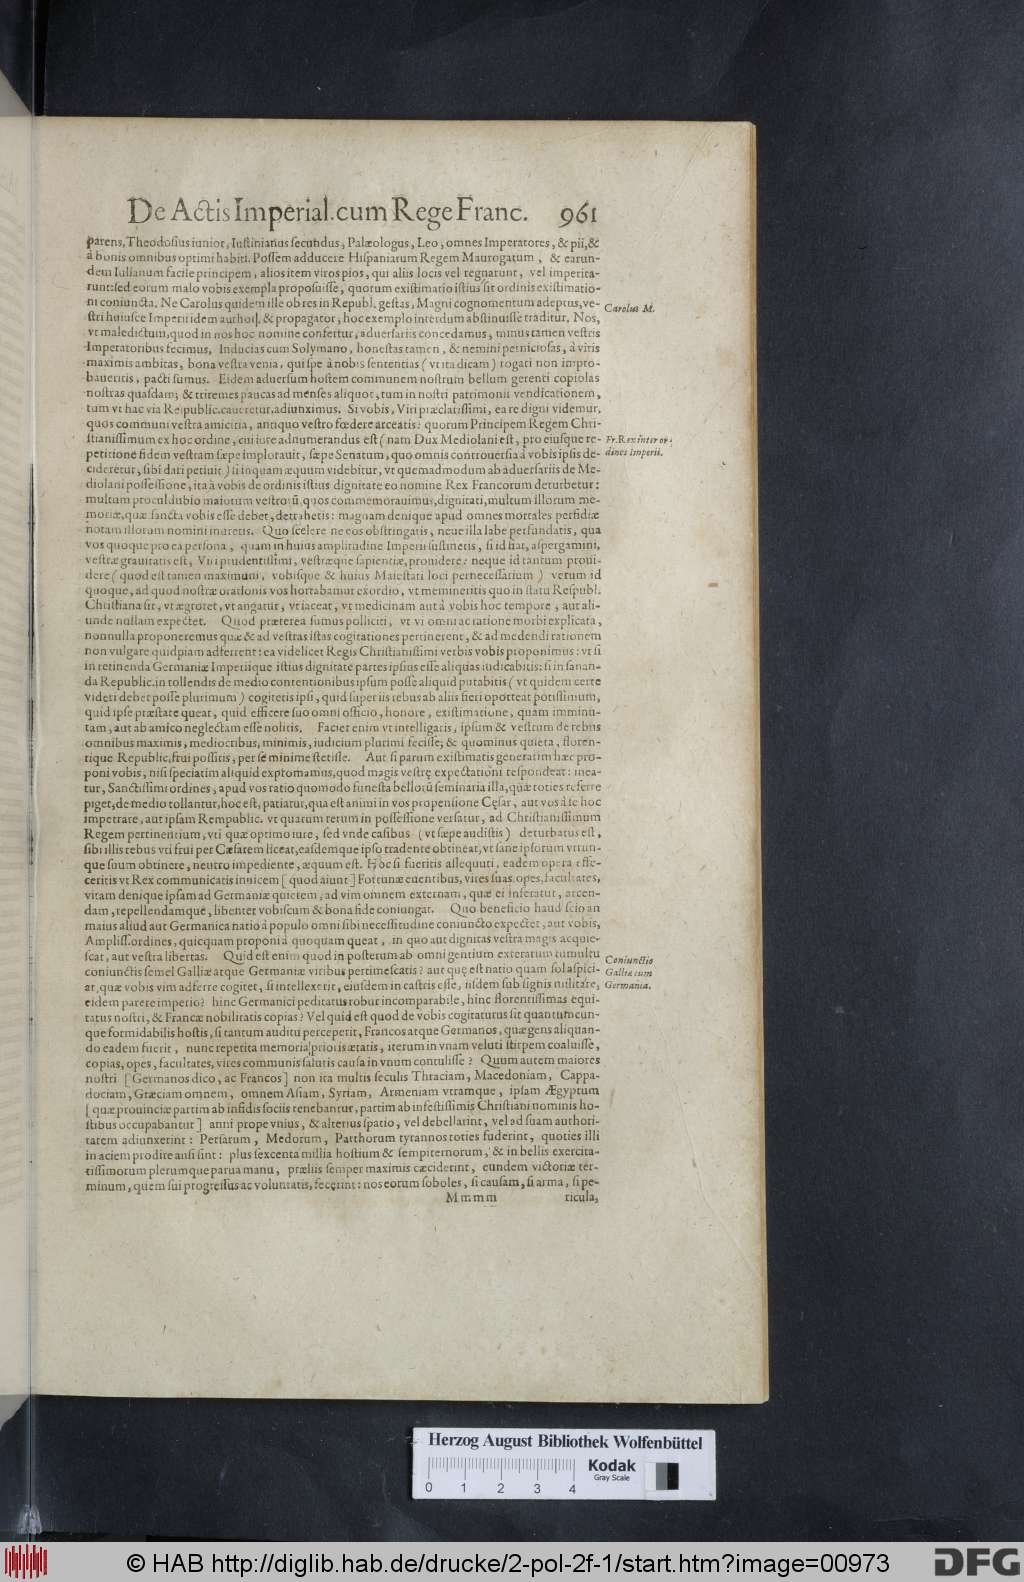 De Actis Imperial. cum Rege Franc. 961
parens, Theodosius iunior, Iustinianus secundus, Palæologus, Leo, omnes Imperatores, & pii, &
à bonis omnibus optimi habiti. Possem adducere Hispaniarum Regem Maurogatum, & earun-
dem Iulianum facile principem, alios item viros pios, qui aliis locis vel regnarunt, vel imperita-
runt: sed eorum malo vobis exempla proposuisse, quorum existimatio istius sit ordinis existimatio-
ni coniuncta. Ne Carolus quidem ille ob res in Republ. gestas, Magni cognomentum adeptus, ve-
stri huiusce Imperii idem author, & propagator, hoc exemplo interdum abstinuisse traditur. Nos,
vt maledictum, quod in nos hoc nomine confertur, aduersariis concedamus, minus tamen vestris
Imperatoribus fecimus, Inducias cum Solymano, honestas tamen, & nemini perniciosas, à viris
maximis ambitas, bona vestra venia, qui spe à nobis sententias (vt ita dicam) rogati non impro-
baueritis, pacti sumus. Eidem aduersum hostem communem nostrum bellum gerenti copiolas
nostras quasdam; & triremes paucas ad menses aliquot, tum in nostri patrimonii vendicationem,
tum vt hac via Reipublic. caueretur, adiunximus. Si vobis, Viri præclarissimi, ea re digni videmur,
quos communi vestra amicitia, antiquo vestro fœdere arceatis: quorum Principem Regem Chri-
stianissimum ex hoc ordine, cui iure adnumerandus est (nam Dux Mediolani est, pro eiusque re-
petitione fidem vestram sæpe implorauit, sæpe Senatum, quo omnis controuersia à vobis ipsis de-
cideretur, sibi dari petiuit) si inquam æquum videbitur, vt quemadmodum ab aduersariis de Me-
diolani possessione, ita à vobis de ordinis istius dignitate eo nomine Rex Francorum deturbetur:
multum procul dubio maiorum vestrorũ, quos commemorauimus, dignitati, multum illorum me-
moriæ, quæ sancta vobis esse debet, detrahetis: magnam denique apud omnes mortales perfidiæ
notam illorum nomini inuretis. Quo scelere ne vos obstringatis, neue illa labe perfundatis, qua
vos quoque pro ea persona, quam in huius amplitudine Imperii sustinetis, si id fiat, aspergamini,
vestræ grauitatis est, Viri prudentissimi, vestræque sapientiæ, prouidere: neque id tantum proui-
dere (quod est tamen maximum, vobisque & huius Maiestati loci pernecessarium) verum id
quoque, ad quod nostræ orationis vos hortabamur exordio, vt memineritis quo in statu Respubl.
Christiana sit, vt ægrotet, vt angatur, vt iaceat, vt medicinam aut à vobis hoc tempore, aut ali-
unde nullam expectet. Quod præterea sumus polliciti, vt vi omni ac ratione morbi explicata,
nonnulla proponeremus quæ & ad vestras istas cogitationes pertinerent, & ad medendi rationem
non vulgare quidpiam adferrent: ea videlicet Regis Christianissimi verbis vobis proponimus: vt si
in retinenda Germaniæ Imperiique istius dignitate partes ipsius esse aliquas iudicabitis: si in sanan-
da Republic. in tollendis de medio contentionibus ipsum posse aliquid putabitis (vt quidem certe
videri debet posse plurimum) cogitetis ipsi, quid super iis rebus ab aliis fieri oporteat potissimum,
quid ipse præstare queat, quid efficere suo omni officio, honore, existimatione, quam imminu-
tam, aut ab amico neglectam esse nolitis. Faciet enim vt intelligatis, ipsum & vestrum de rebus
omnibus maximis, mediocribus, minimis, iudicium plurimi fecisse; & quominus quieta, floren-
tique Republic. frui possitis, per se minime stetisse. Aut si parum existimatis generatim hæc pro-
poni vobis, nisi speciatim aliquid expromamus, quod magis vestrę expectationi respondeat: inea-
tur, Sanctissimi ordines, apud vos ratio quomodo funesta bellorũ seminaria illa, quæ toties referre
piget, de medio tollantur, hoc est, patiatur, qua est animi in vos propensione Cęsar, aut vos à se hoc
impetrare, aut ipsam Rempublic. vt quarum rerum in possessione versatur, ad Christianissimum
Regem pertinentium, vti quæ optimo iure, sed vnde casibus (vt sæpe audistis) deturbatus est,
sibi illis rebus vti frui per Cæsarem liceat, easdemque ipso tradente obtineat, vt sane ipsorum vtrun-
que suum obtinere, neutro impediente, æquum est. Hoc si fueritis assequuti, eadem opera effe-
ceritis vt Rex communicatis inuicem [quod aiunt] Fortunæ euentibus, vires suas, opes, facultates,
vitam denique ipsam ad Germaniæ quietem, ad vim omnem externam, quæ ei inferatur, arcen-
dam, repellendamque, libenter vobiscum & bona fide coniungat. Quo beneficio haud scio an
maius aliud aut Germanica natio à populo omni sibi necessitudine coniuncto expectet, aut vobis,
Ampliss. ordines, quicquam proponi à quoquam queat, in quo aut dignitas vestra magis acquie-
scat, aut vestra libertas. Quid est enim quod in posterum ab omni gentium exterarum tumultu
coniunctis semel Galliæ atque Germaniæ viribus pertimescatis? aut quę est natio quam sol aspici-
at, quæ vobis vim adferre cogitet, si intellexerit, eiusdem in castris esse, iisdem sub signis militare,
eidem parere imperio? hinc Germanici peditatus robur incomparabile, hinc florentissimas equi-
tatus nostri, & Francæ nobilitatis copias? Vel quid est quod de vobis cogitaturus sit quantumcun-
que formidabilis hostis, si tantum auditu perceperit, Francos atque Germanos, quæ gens aliquan-
do eadem fuerit, nunc repetita memoria prioris ætatis, iterum in vnam veluti stirpem coaluisse,
copias, opes, facultates, vires communis salutis causa in vnum contulisse? Quum autem maiores
nostri [Germanos dico, ac Francos] non ita multis seculis Thraciam, Macedoniam, Cappa-
dociam, Græciam omnem, omnem Asiam, Syriam, Armeniam vtramque, ipsam Ægyptum
[quæ prouinciæ partim ab infidis sociis tenebantur, partim ab infestissimis Christiani nominis ho-
stibus occupabantur] anni prope vnius, & alterius spatio, vel debellarint, vel ad suam authori-
tatem adiunxerint: Persarum, Medorum, Parthorum tyrannos toties fuderint, quoties illi
in aciem prodire ausi sint: plus sexcenta millia hostium & sempiternorum, & in bellis exercita-
tissimorum plerumque parua manu, præliis semper maximis cæciderint, eundem victoriæ ter-
minum, quem sui progressus ac voluntatis, fecerint: nos eorum soboles, si causam, si arma, si pe-
Mmmm ricula,
Carolus M.
Fr. Rex inter or-
dines Imperii.
Coniunctio
Galliæ cum
Germania.
Herzog August Bibliothek Wolfenbüttel
Kodak
Gray Scale
0 1 2 3 4
© HAB http://diglib.hab.de/drucke/2-pol-2f-1/start.htm?image=00973
DFG